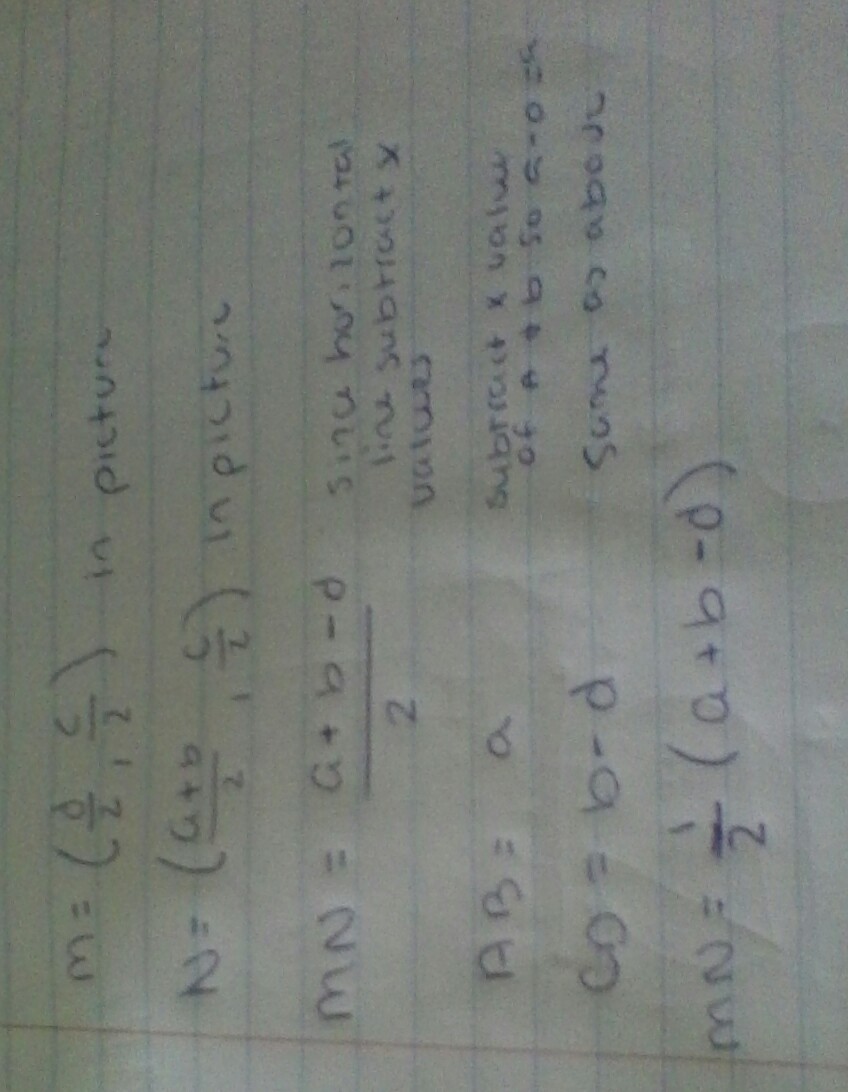 m = (d/2, c/2) in picture
N = (a+b/2, c/2) in picture
MN = a+b-d/2 since horizontal
line subtract x
values
AB = a subtract x value
of A + b so a-0=a
CD = b-d same as above
MN = 1/2 (a+b-d)